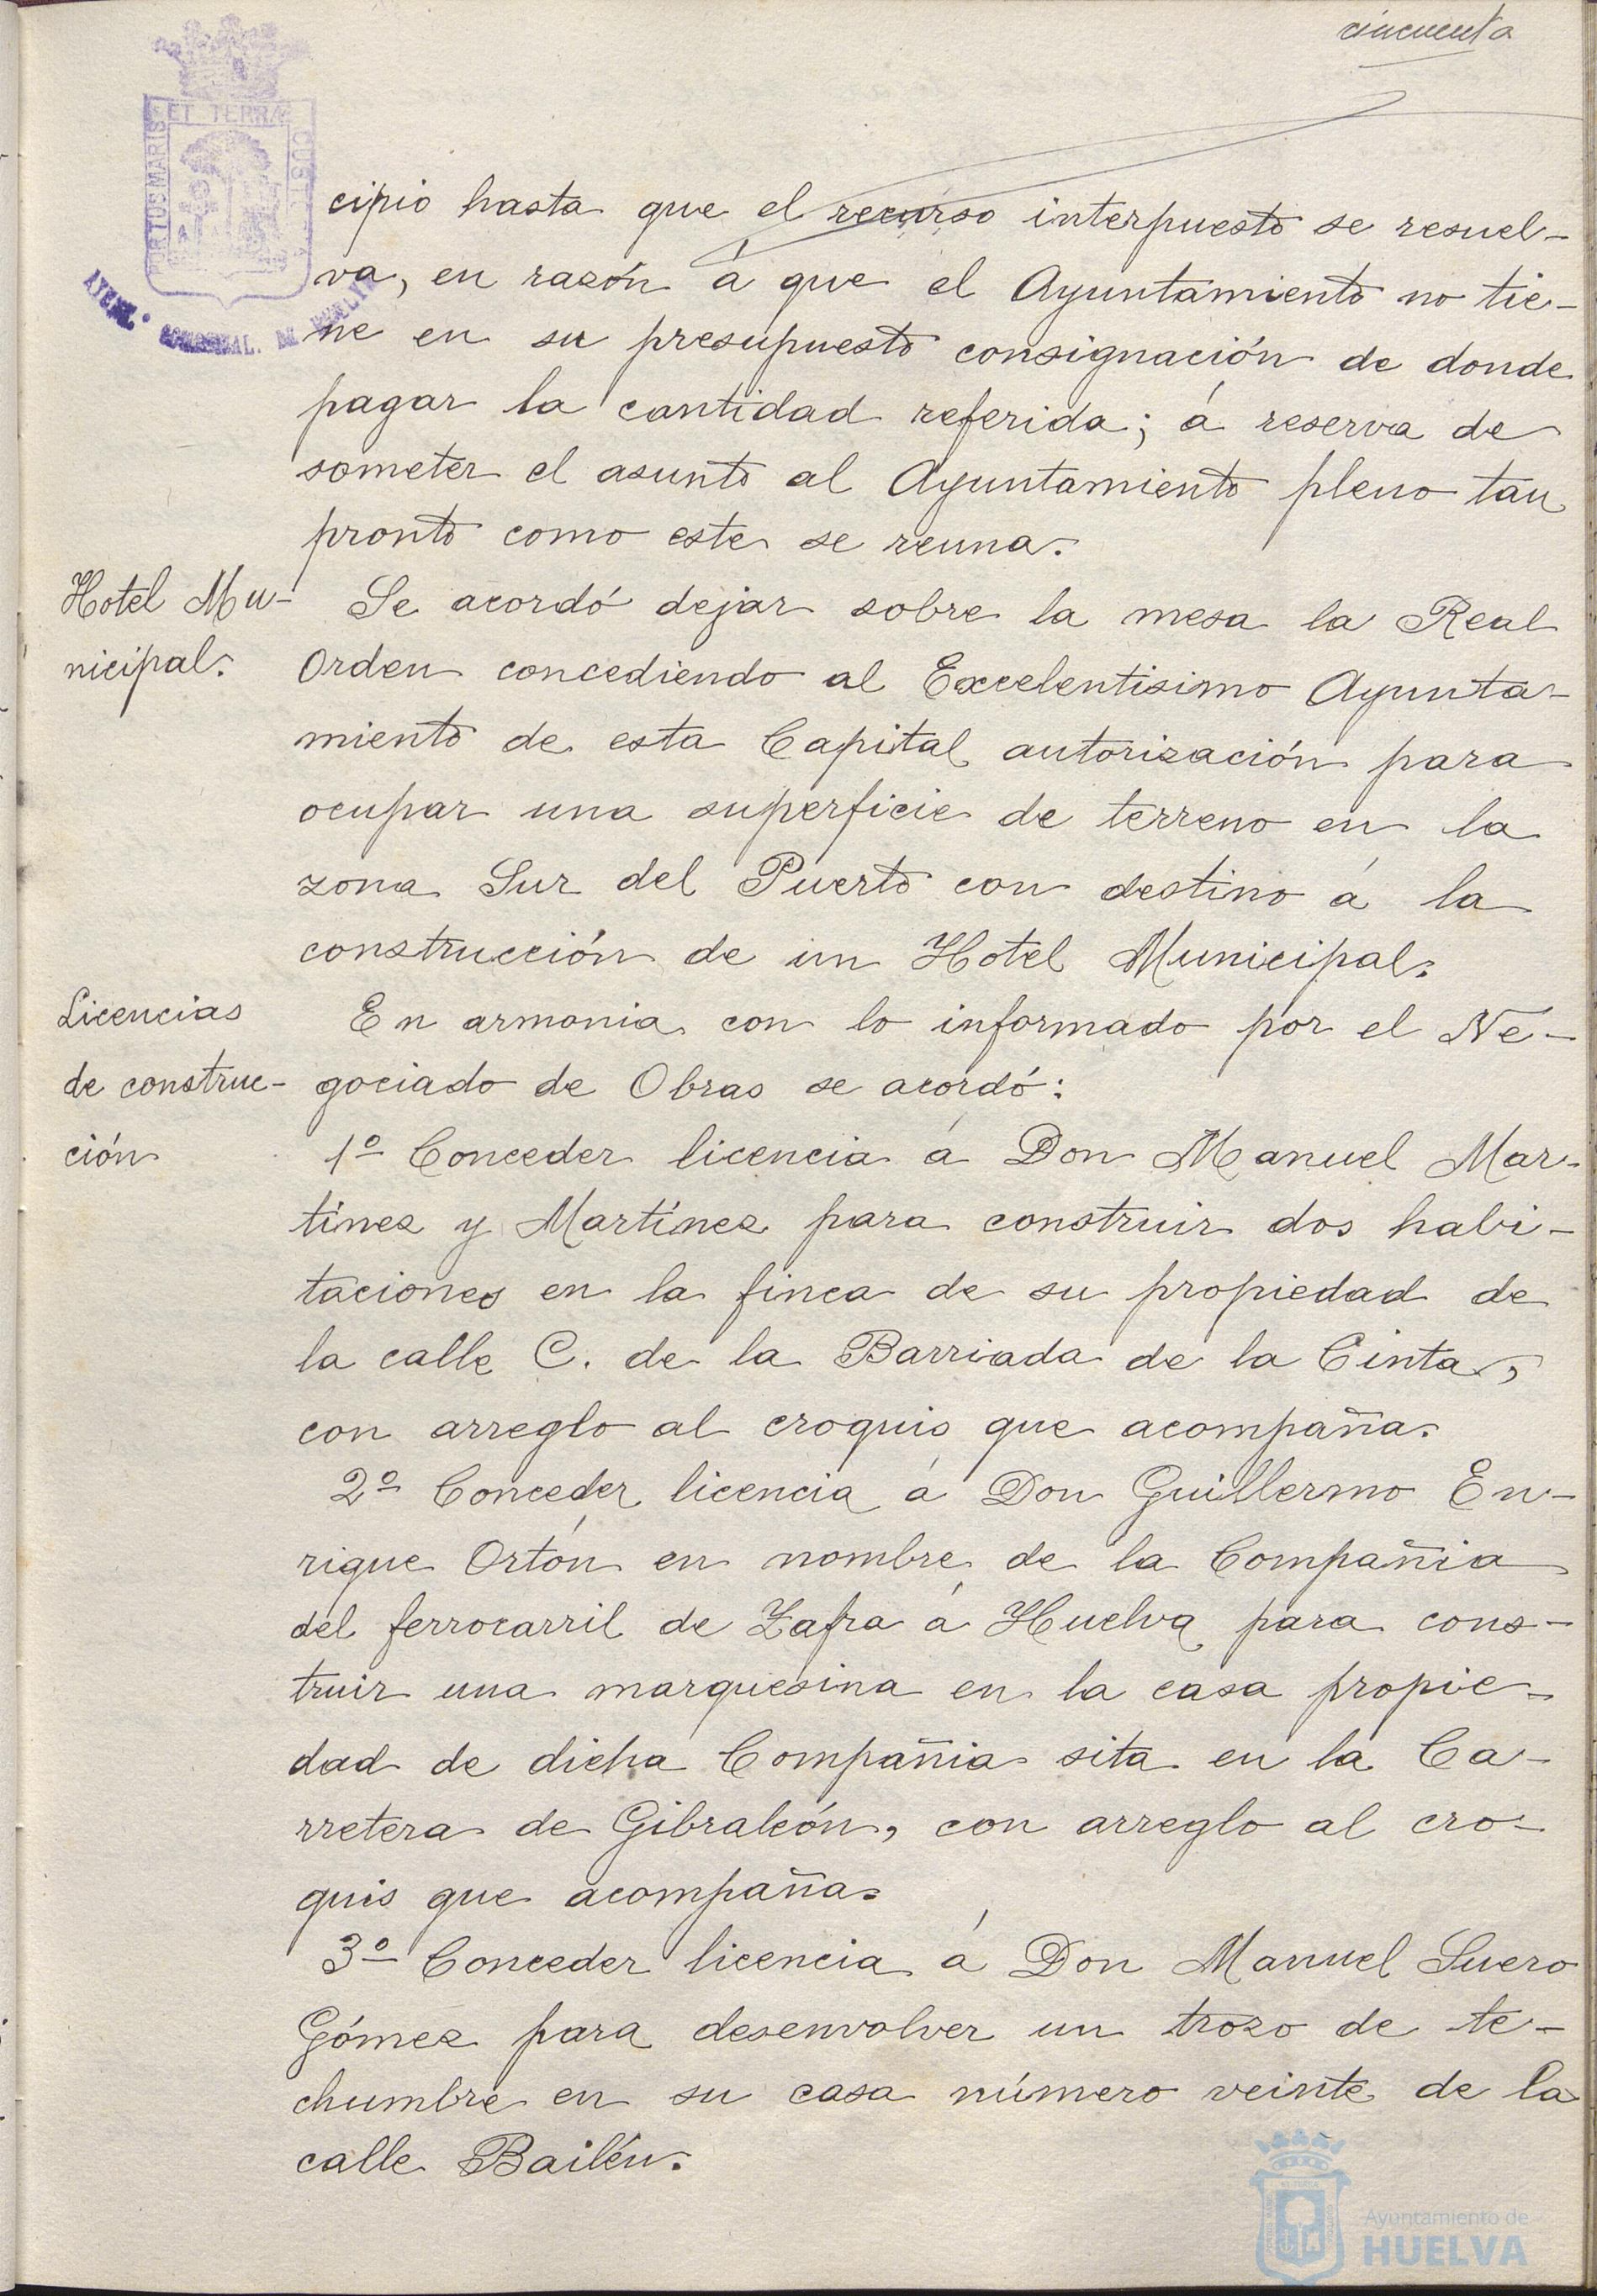 cincuenta
ET TERRÆ
PORTUS MARIS
CUS
AYUNT.º
DE HUELVA
cipio hasta que el recurso interpuesto se resuel-
va, en razón á que el Ayuntamiento no tie-
ne en su presupuesto consignación de donde
pagar la cantidad referida; á reserva de
someter el asunto al Ayuntamiento pleno tan
pronto como este se reuna.
Hotel Mu-
nicipal.
Se acordó dejar sobre la mesa la Real
Orden concediendo al Excelentisimo Ayunta-
miento de esta Capital autorización para
ocupar una superficie de terreno en la
zona Sur del Puerto con destino á la
construcción de un Hotel Municipal.
Licencias
de construc-
ción
En armonia con lo informado por el Ne-
gociado de Obras se acordó:
1º Conceder licencia á Don Manuel Mar-
tínez y Martínez para construir dos habi-
taciones en la finca de su propiedad de
la calle C. de la Barriada de la Cinta,
con arreglo al croquis que acompaña.
2º Conceder licencia á Don Guillermo En-
rique Ortón en nombre de la Compañia
del ferrocarril de Zafra á Huelva para cons-
truir una marquesina en la casa propie-
dad de dicha Compañia sita en la Ca-
rretera de Gibraleón, con arreglo al cro-
quis que acompaña.
3º Conceder licencia á Don Manuel Suero
Gómez para desenvolver un trozo de te-
chumbre en su casa número veinte de la
calle Bailén.
Ayuntamiento de
HUELVA